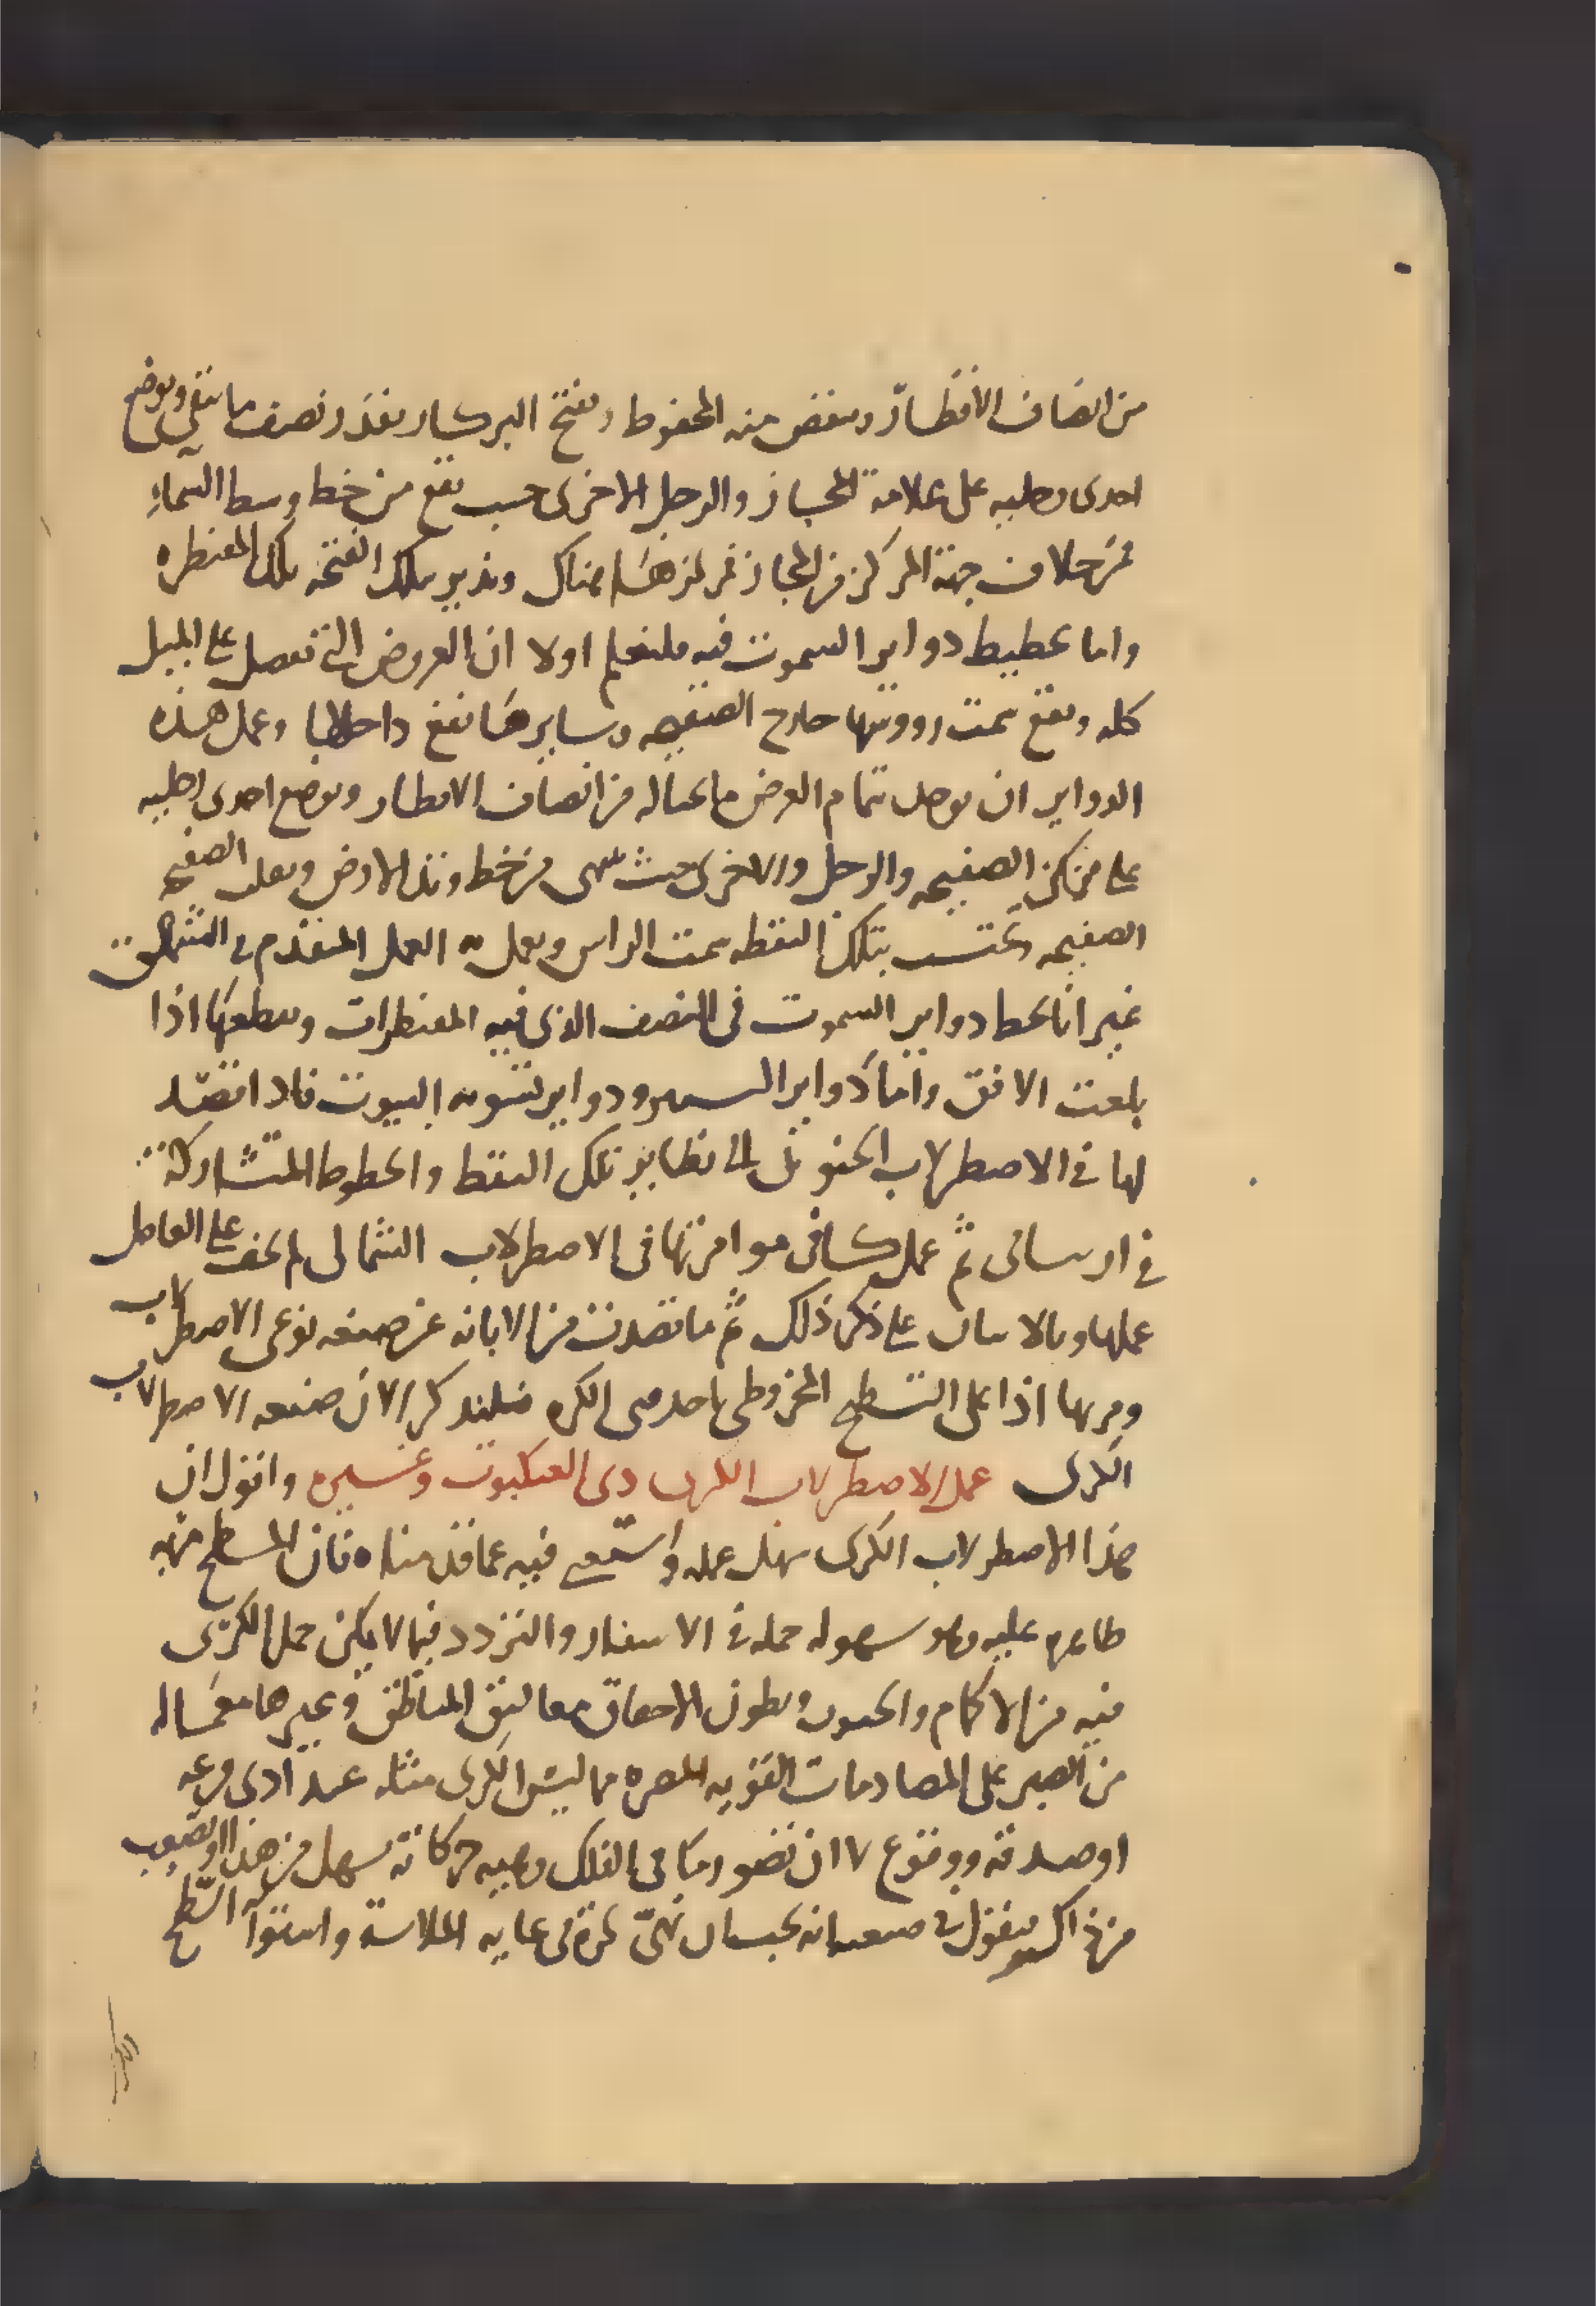 من انصاف الاقطار وينقص منه المحفوظ ونفتح البركار بقدر نصف ما بقي ونوضع
احدى رجليه على علامة المجاز والرجل الاخرى حيث تقع من خط وسط السماء
من خلاف جهة المركز من المجاز فمركزها هناك وندير بتلك الفتحه تلك المقنطره
واما تخطيط دواير السموت فيه فلنعلم اولا ان العروض التي تفضل على الميل
كله وتقع سمت رووسها خارج الصفيحه وسايرها تقع داخلها وعمل هذه
الدواير ان نوخذ تمام العرض ما بحياله من انصاف الاقطار ونوضع احدى رجليه
على مركز الصفيحه والرجل والاخرى حيث تنتهى من خط وتد الارض ونعلم الصفيح
الصفيحه وتحتسب بتلك النقطه سمت الراس ونعمل به العمل المتقدم في الشمالى
غير انا نخط دواير السموت في النصف الذى فيه المقنطرات ونقطعها اذا
بلغت الافق واما دواير ودواير تسويه البيوت فاذا
لها في الاصطرلاب الجنوبى الى نظاير تلك النقط والخطوط المتشاركة
في ثم عمل في الاصطرلاب الشمالى لم يخف على العامل
عملها على ذكر ذلك ثم ما قصدت من الابانه عن صنعه نوعى الاصطرلاب
اذا على التسطيح المخروطى باحد قطبى الكره فلنذكر الان صنعه الاصطرلاب
الكرى عمل الاصطرلاب الكرى ذى العنكبوت وغيره واقول ان
هذا الاصطرلاب الكرى سهل عمله فيه عما قدمناه فان المسطح
عليه وهو سهوله حمله في الاسفار والتردد فيما لا يمكن حمل الكرى
فيه من الاكمام والجيوب وبطون الاخفاف ومعاليق المناطق وغيرها مع ماله
من الصبر على المصادمات القويه مما ليس للكرى مثله عند ادنى قرعه
او صدفه ووقوع الا ان تصور ما في الفلك وهييه حركاته يسهل من هذا
من ذاك فنقول في صنعته انه يحب ان تهيى كرة في غايه الملاسة واستوا السطح